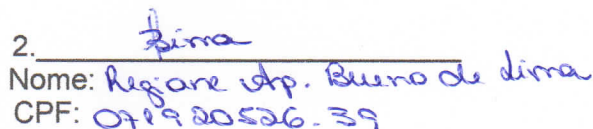 2. Lima
Nome: Regiane Ap. Bueno de Lima
CPF: 071920526-39